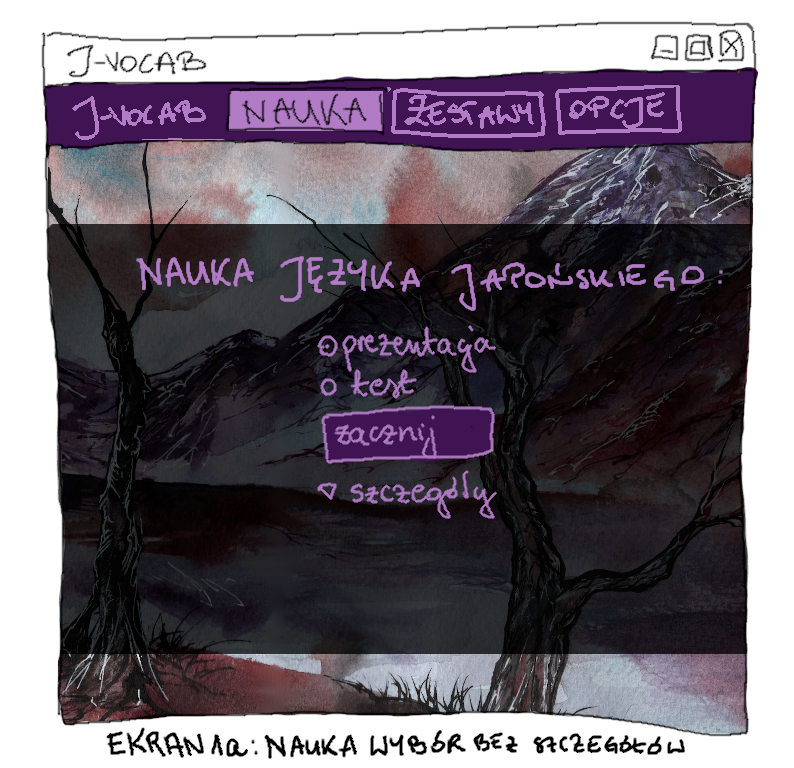 J-VOCAB
J-VOCAB NAUKA ZESTAWY OPCJE
NAUKA JĘZYKA JAPOŃSKIEGO:
prezentacja
test
zacznij
szczegóły
EKRAN 1a: NAUKA WYBÓR BEZ SZCZEGÓŁÓW